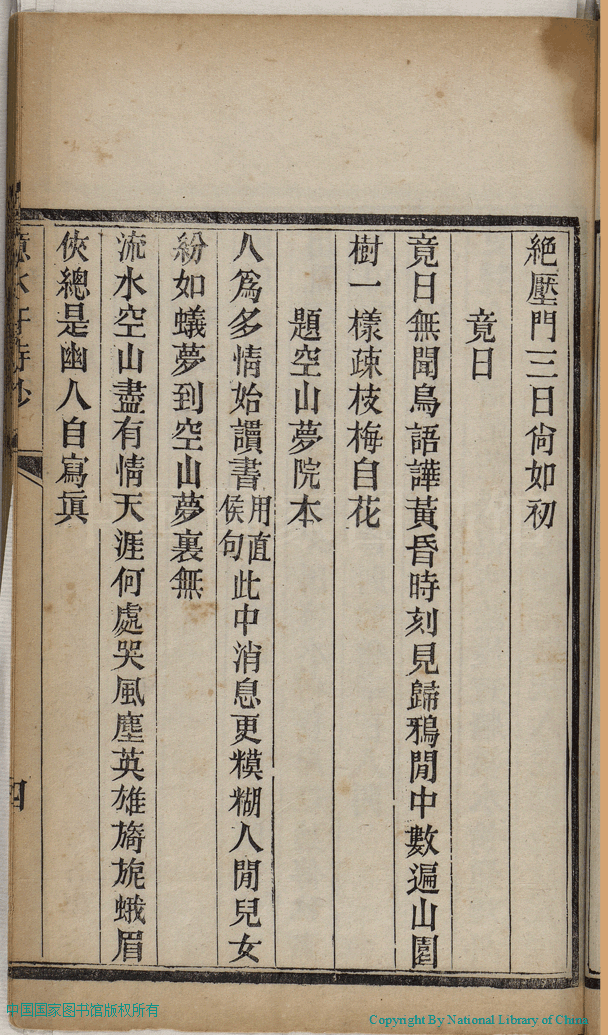 絕壓門三日尙如初
竟日
竟日無聞鳥語譁黃昏時刻見歸鴉閒中數遍山園
樹一樣疎枝梅自花
題空山夢院本
人爲多情始讀書用直侯句此中消息更糢糊人閒兒女
紛如蟻夢到空山夢裏無
流水空山盡有情天涯何處哭風塵英雄旖旎蛾眉
俠總是幽人自寫眞
四
中国国家图书馆版权所有
Copyright By National Library of China